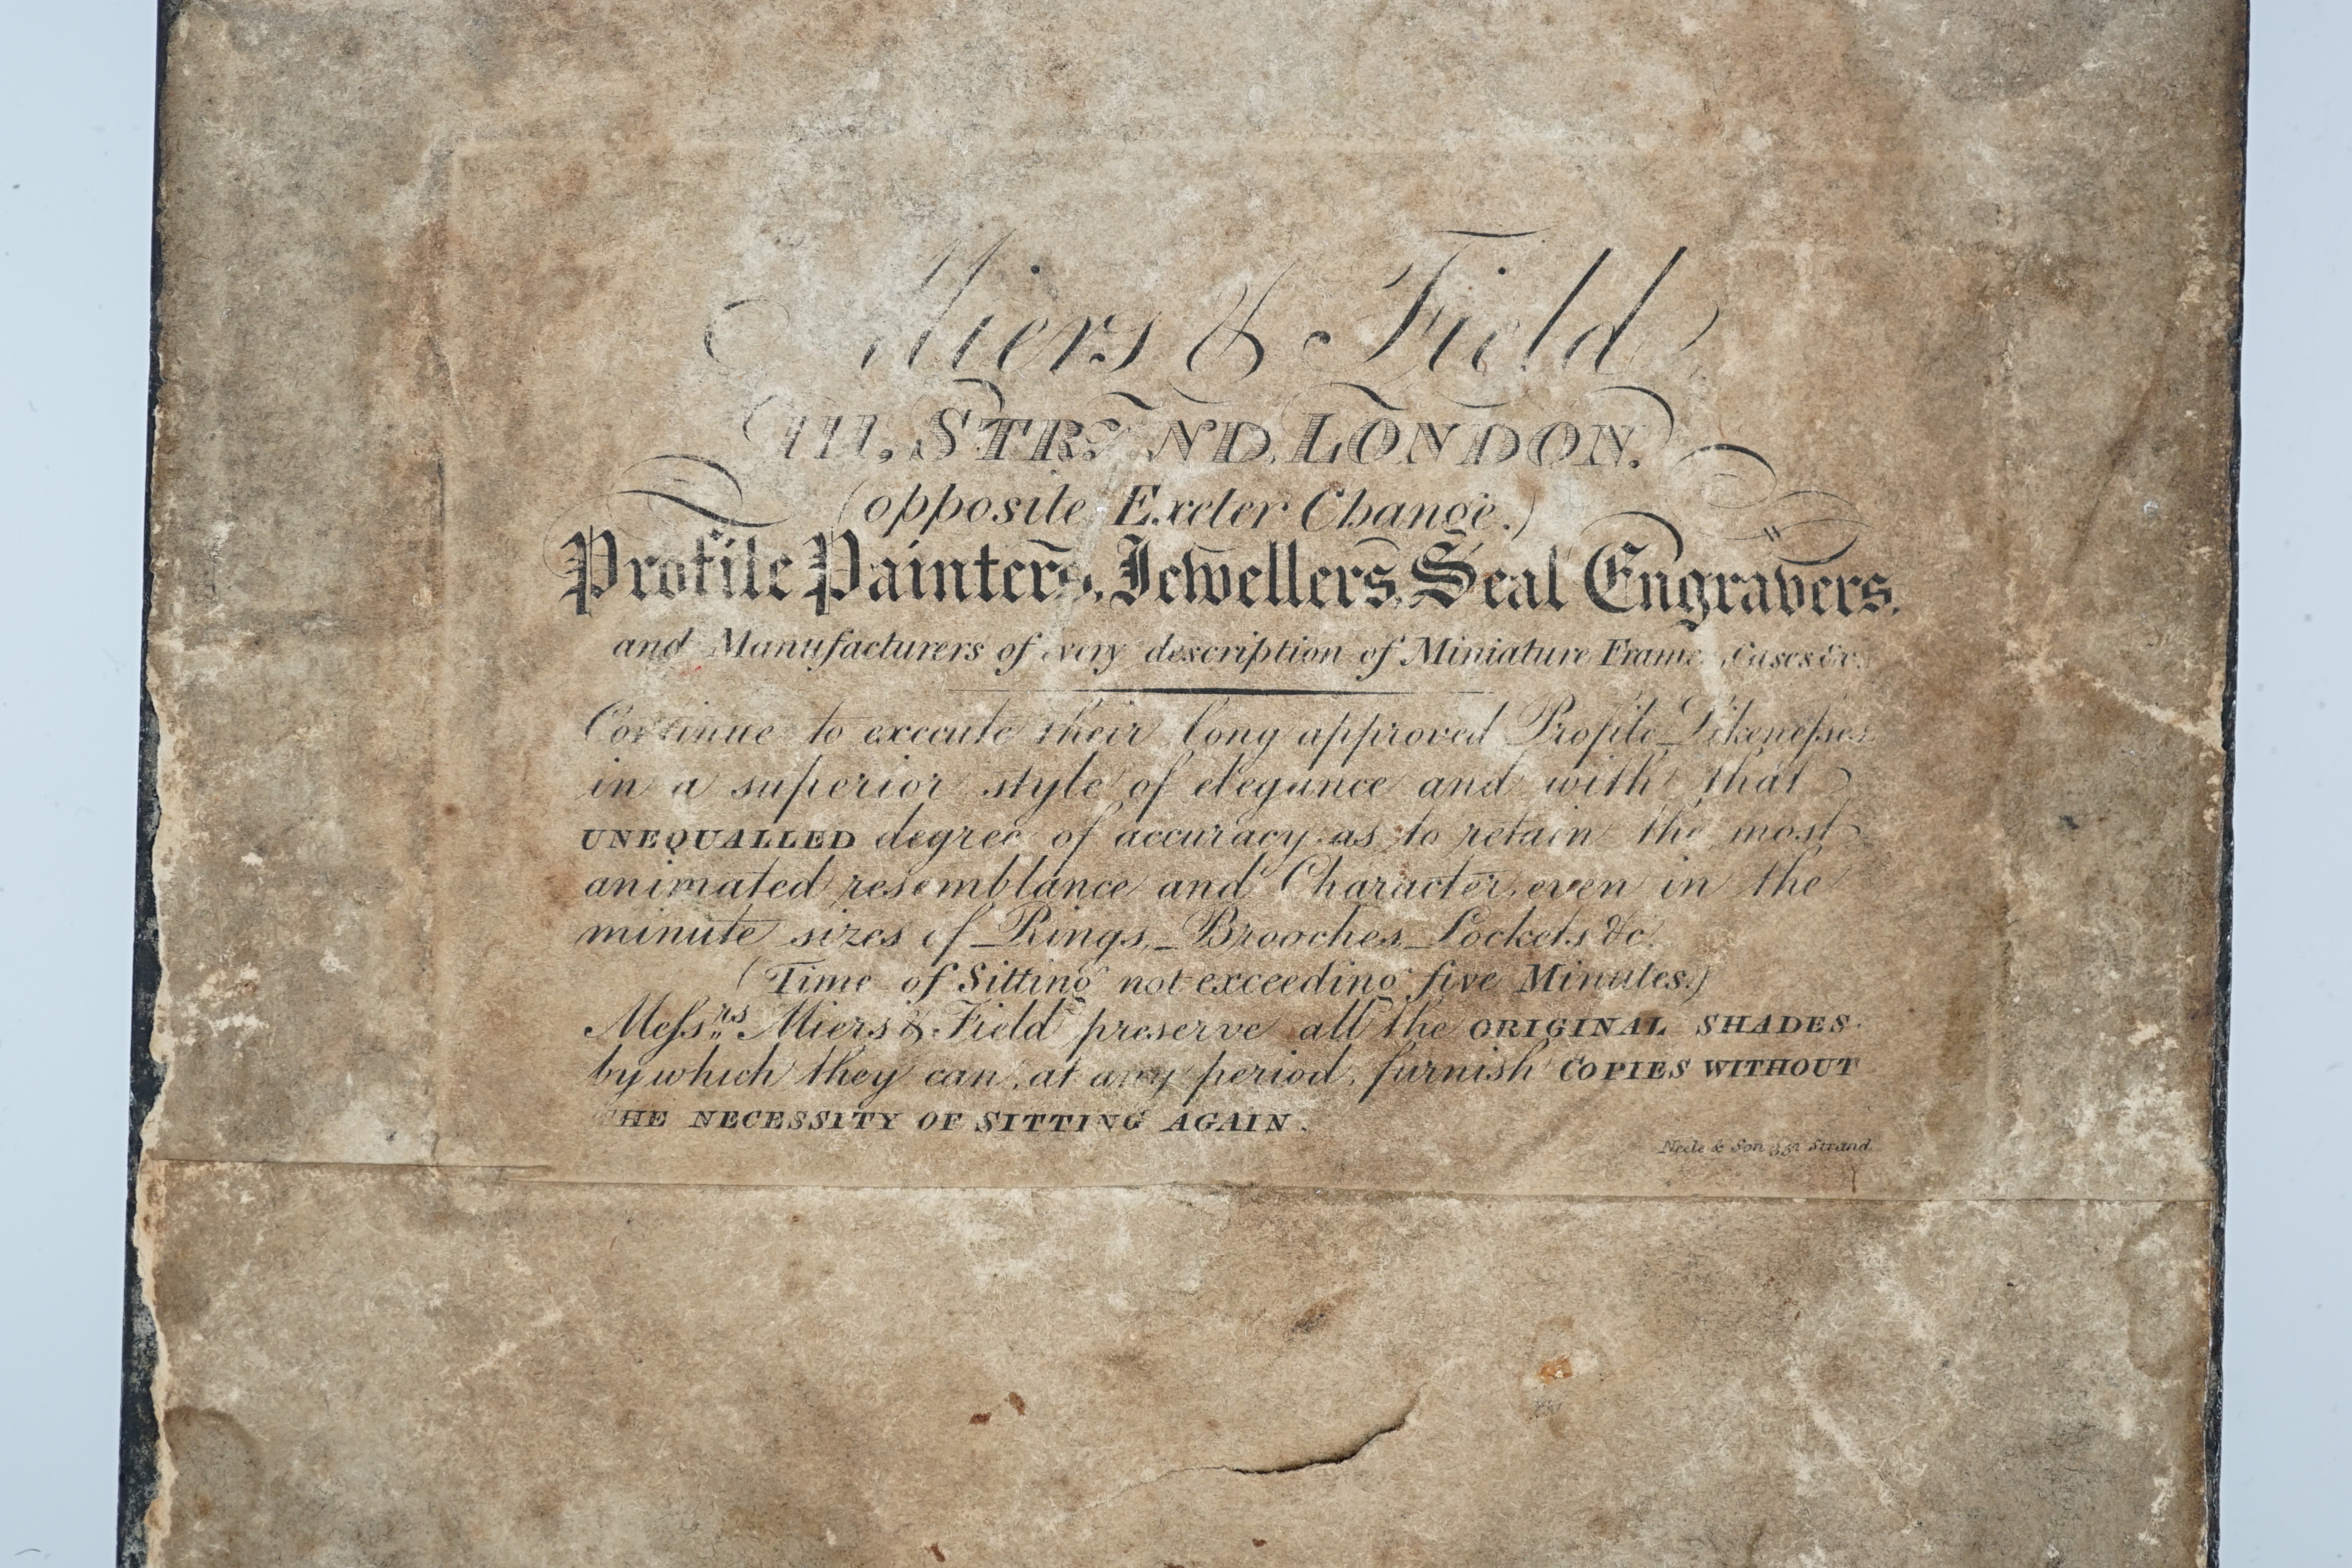 Miers & Field,
111, STRAND, LONDON.
(opposite Exeter Change.)
Profile Painters, Jewellers, Seal Engravers,
and Manufacturers of every description of Miniature Frames, Cases &c.
Continue to execute their long approved Profile Likenesses
in a superior style of elegance and with that
UNEQUALLED degree of accuracy as to retain the most
animated resemblance and Character, even in the
minute sizes of Rings, Brooches, Lockets &c.
(Time of Sitting not exceeding five Minutes.)
Messrs Miers & Field preserve all the ORIGINAL SHADES
by which they can, at any period, furnish COPIES WITHOUT
THE NECESSITY OF SITTING AGAIN.
Neele & Son 352 Strand